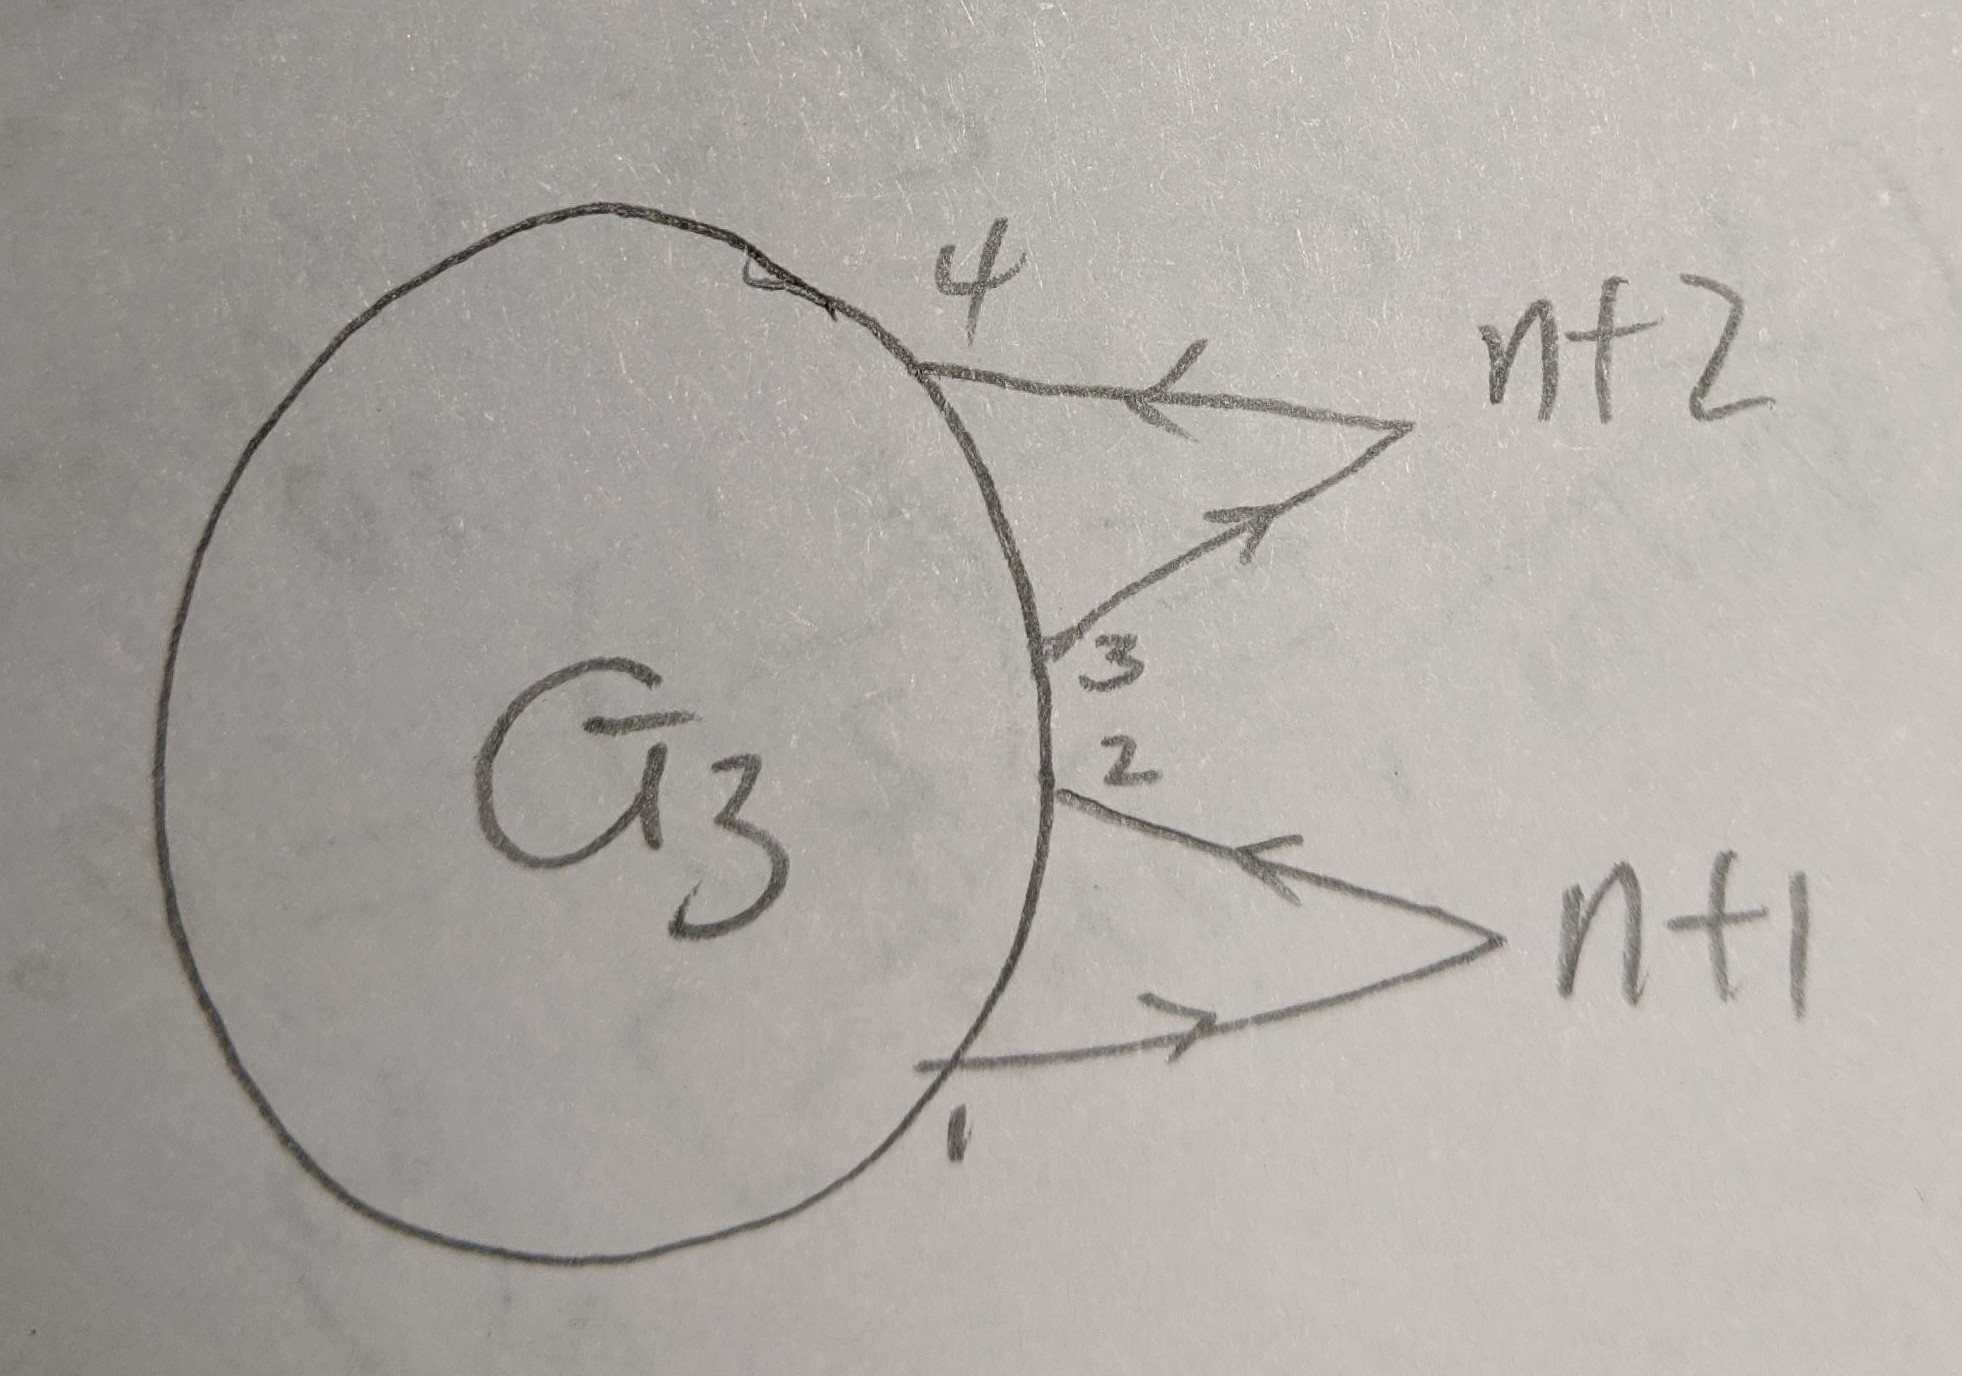 4
n+2
3
G3
2
n+1
1